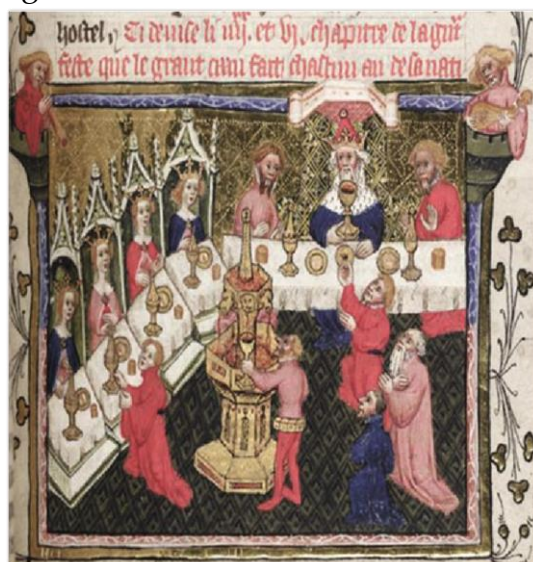 hostel, Ci deuise li .iiij. et vj. chapitre de la grãt
feste que le grant caan fait chascun an de sa nati